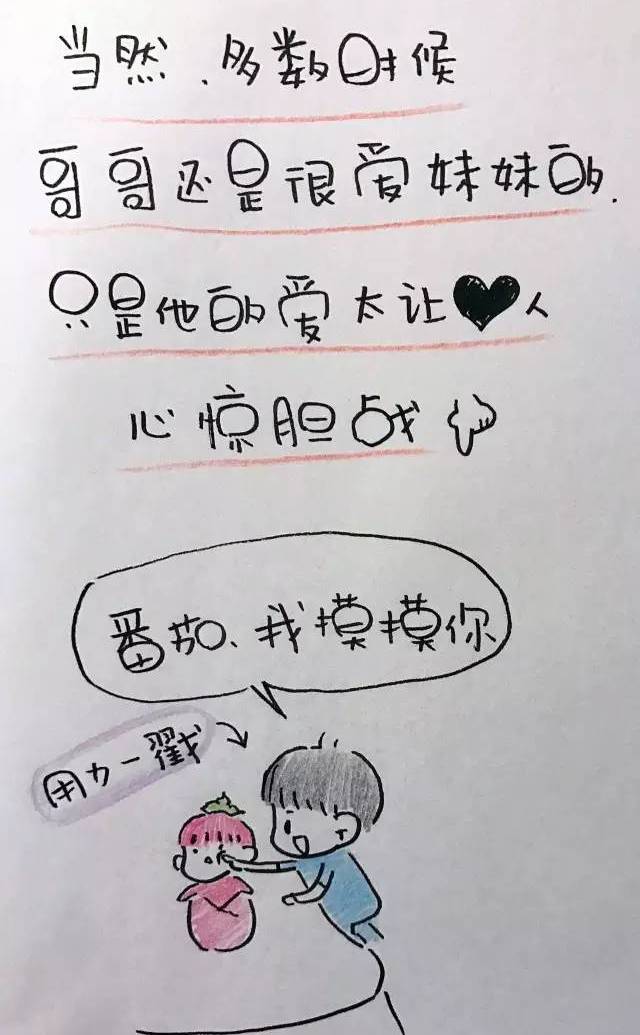 当然、多数时候
哥哥还是很爱妹妹的.
只是他的爱太让人
心惊胆战
番茄、我摸摸你
用力一戳